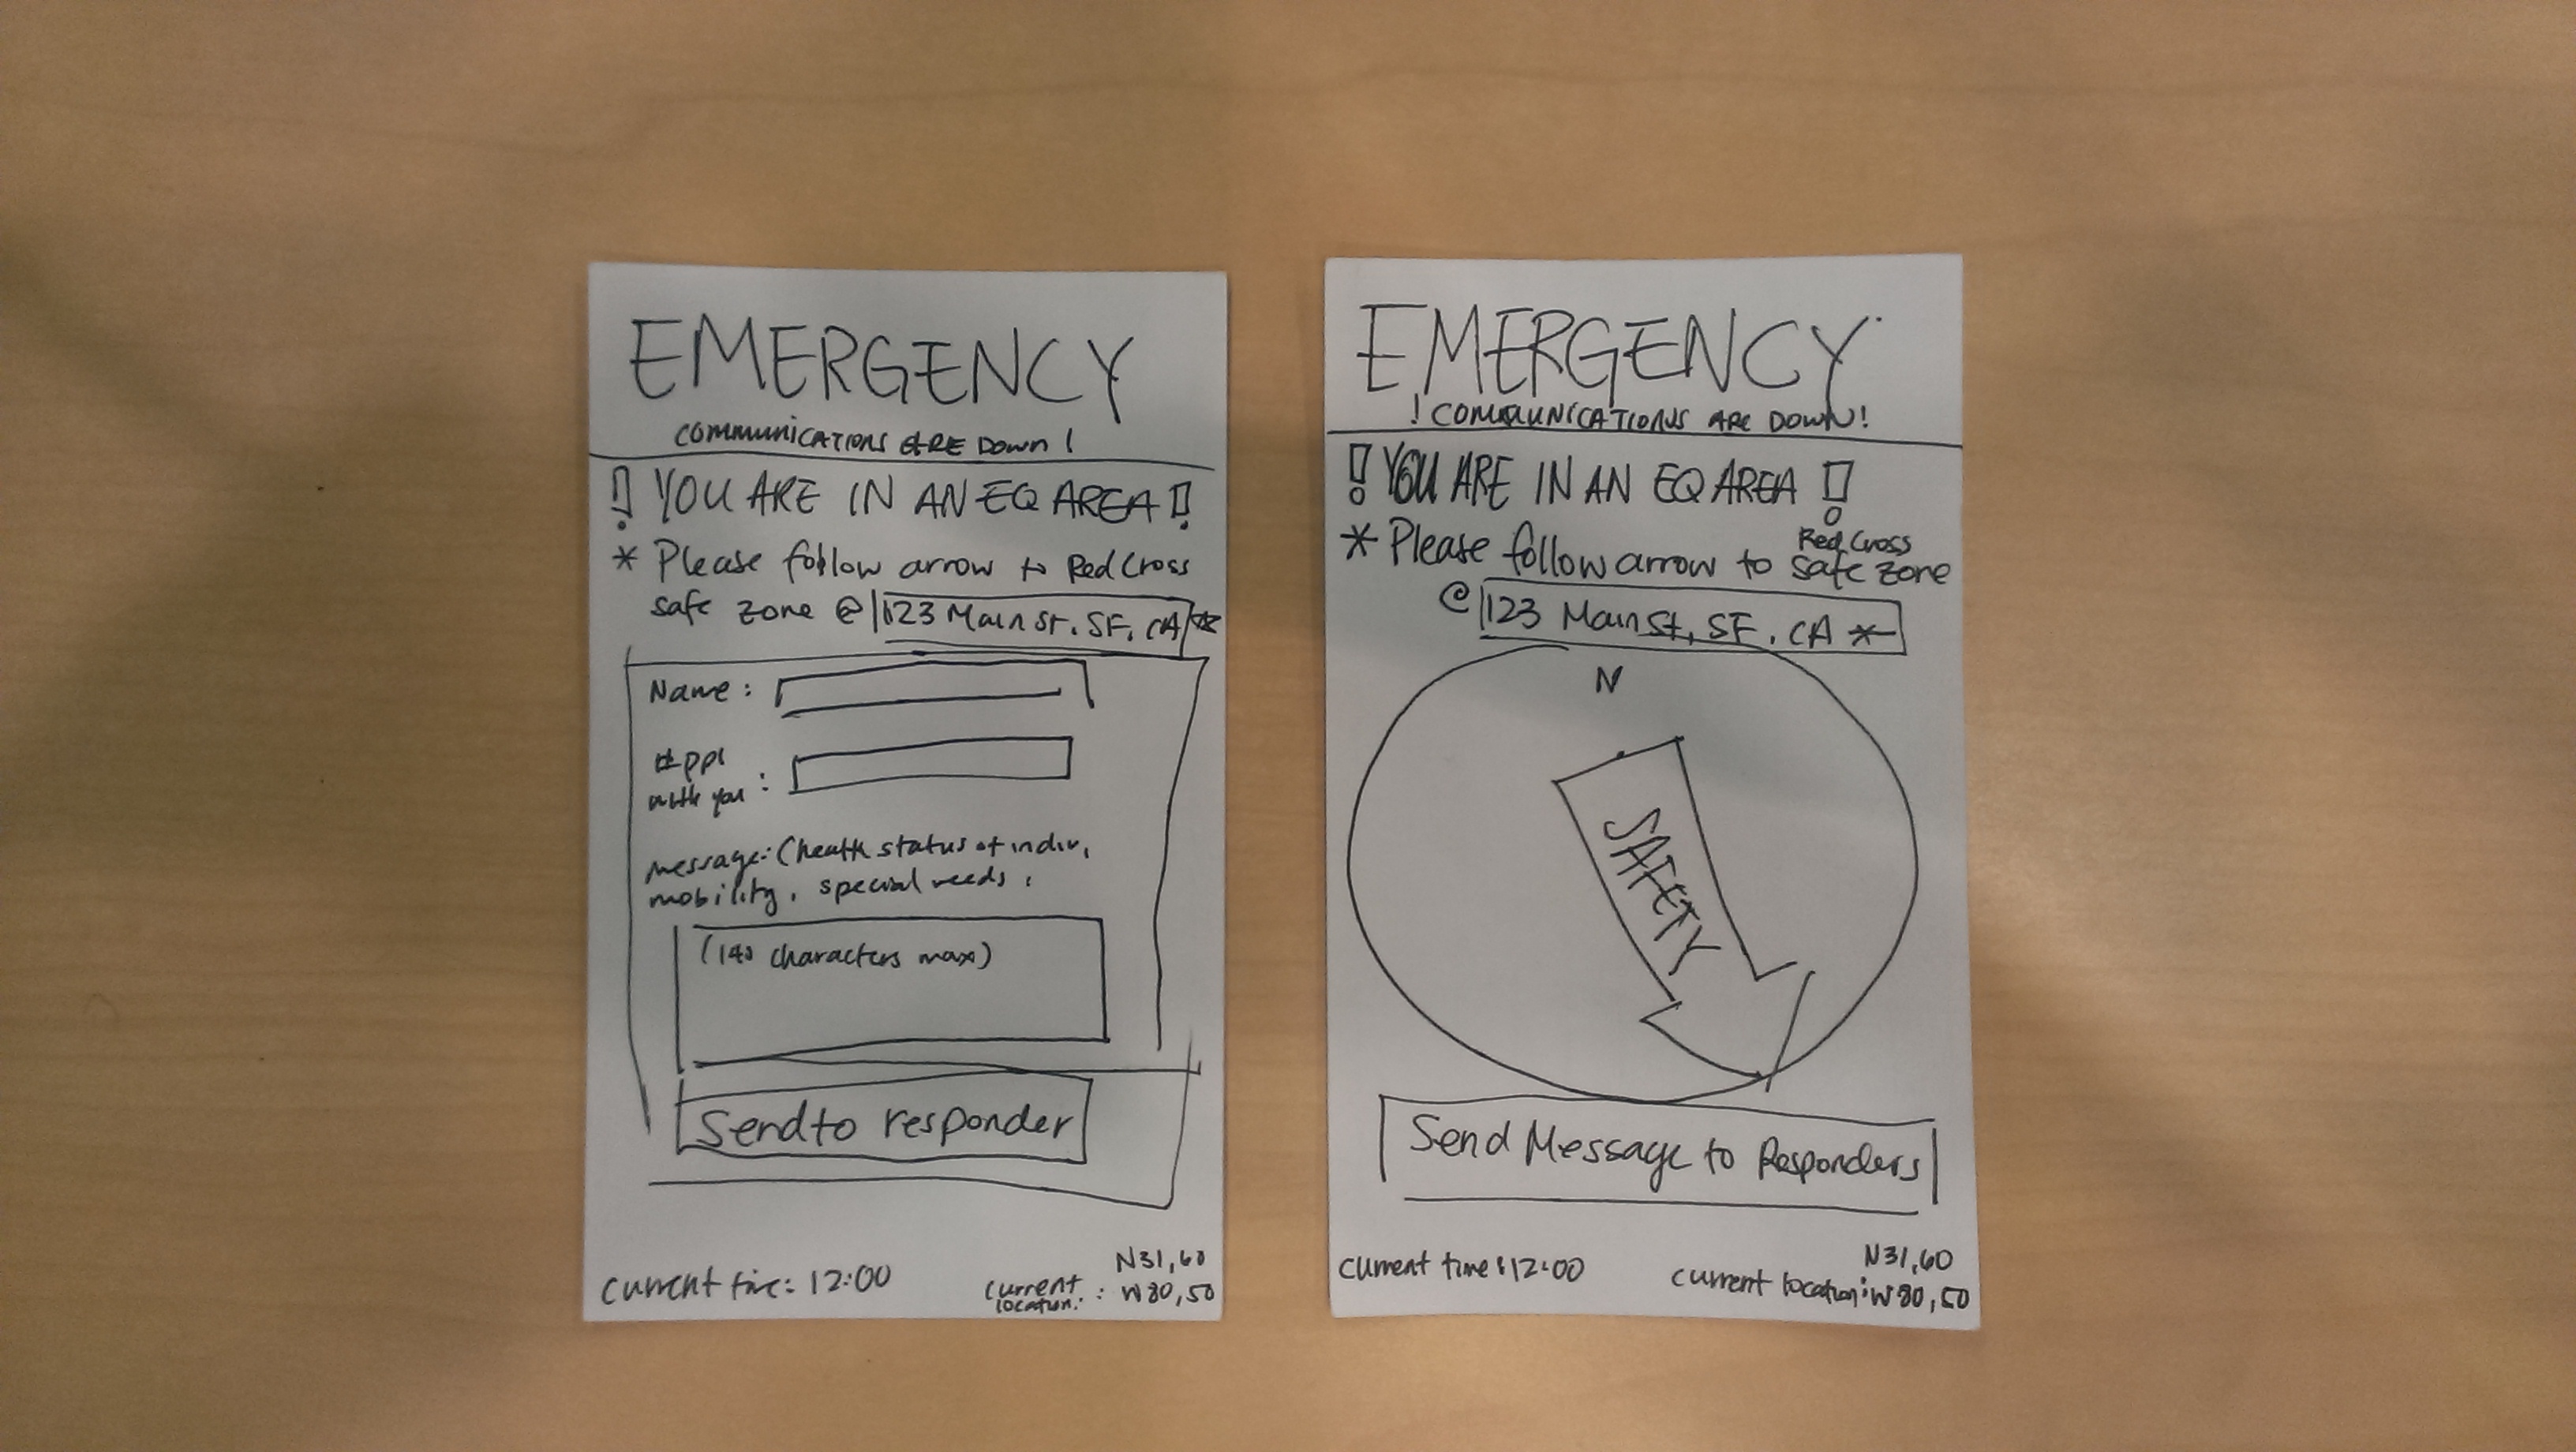 EMERGENCY
COMMUNICATIONS ARE DOWN!
! YOU ARE IN AN EQ AREA !
* Please follow arrow to Red Cross
safe zone @ 123 Main St. SF, CA *
Name:
# ppl
with you:
message: (health status of indiv,
mobility, special needs,
(140 characters max)
Send to responder
N31,60
current time: 12:00
current
location: W80,50
EMERGENCY
! COMMUNICATIONS ARE DOWN!
! YOU ARE IN AN EQ AREA !
Red Cross
* Please follow arrow to safe zone
@ 123 Main St, SF, CA *
N
SAFETY
Send Message to Responders
N31,60
current time: 12:00
current location: W80,50